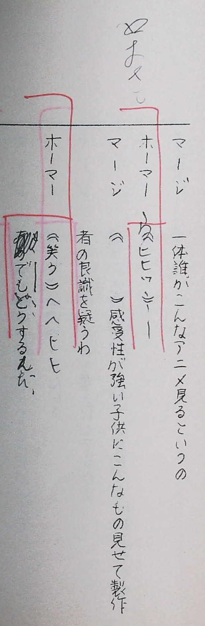 マージ 一体誰がこんなアニメ見るというの
ホーマー ヒヒッシー
マージ 《 》感受性が強い子供にこんなもの見せて製作
者の良識を疑うわ
ホーマー 《笑う》へヘヒヒ
でもどうするんだ、